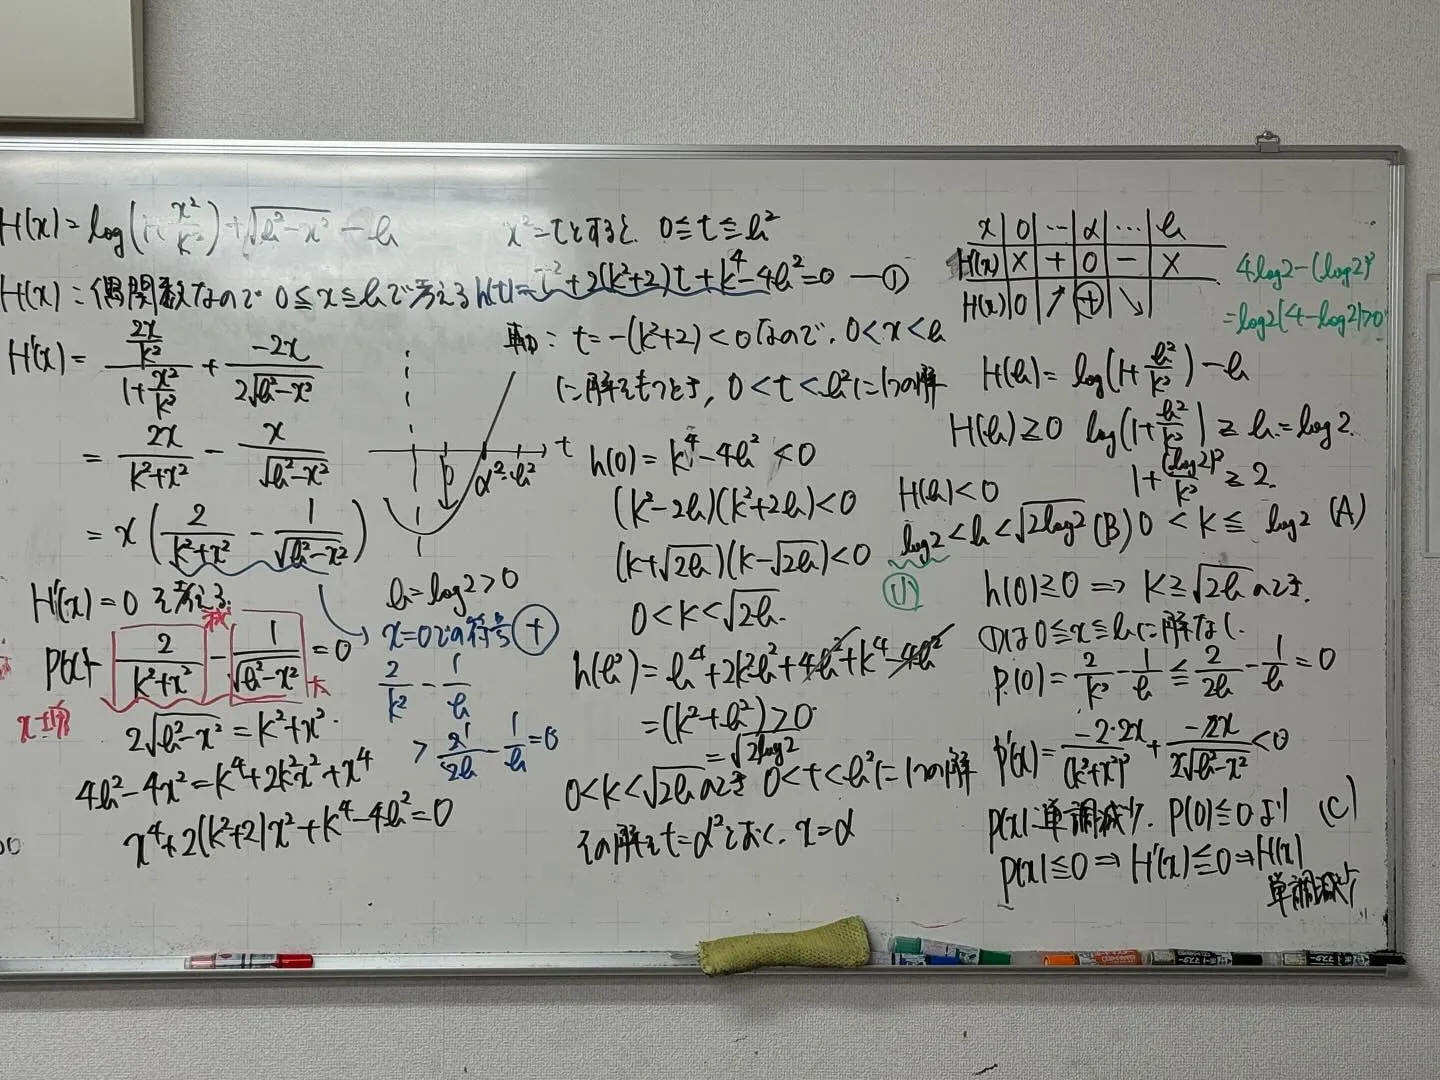 H(x)=log(1+x²/k²)+√(h²-x²)-h
H(x):偶関数なので 0≦x≦hで考える
H'(x)=(2x/k²)/(1+x²/k²)+(-2x)/(2√(h²-x²))
=2x/(k²+x²)-x/√(h²-x²)
=x(2/(k²+x²)-1/√(h²-x²))
H'(x)=0を考える.
2/(k²+x²)-1/√(h²-x²)=0
2√(h²-x²)=k²+x².
4h²-4x²=k⁴+2k²x²+x⁴
x⁴+2(k²+2)x²+k⁴-4h²=0
h=log2>0
x=0での符号⊕
2/k²-1/h
>2/2h-1/h=0
x²=tとすると. 0≦t≦h²
h(t)=t²+2(k²+2)t+k⁴-4h²=0 —①
軸: t=-(k²+2)<0なので, 0<x<h
に解をもつとき, 0<t<h²に1つの解
t
α² h²
h(0)=k⁴-4h²<0
(k²-2h)(k²+2h)<0
(k+√2h)(k-√2h)<0
0<k<√2h.
h(h²)=h⁴+2k²h²+4h²+k⁴-4h²
=(k²+h²)>0
=√2log2
0<k<√2hのとき 0<t<h²に1つの解
その解をt=α²とおく. x=α
x 0 … α … h
H'(x) × + 0 - ×
H(x) 0 ↗ ⊕ ↘
4log2-(log2)²
=log2(4-log2)>0
H(h)=log(1+h²/k²)-h
H(h)≧0 log(1+h²/k²)≧h=log2.
1+(log2)²/k²≧2.
H(h)<0
log2<k<√2log2 (B) 0<k≦log2 (A)
h(0)≧0⇒k≧√2hのとき.
①は0≦x≦hに解なし.
p(0)=2/k²-1/h≦2/2h-1/h=0
p'(x)=-2·2x/(k²+x²)²+-2x/2√(h²-x²)<0
p(x):単調減少. p(0)≦0より (C)
p(x)≦0⇒H'(x)≦0⇒H(x)
単調減少